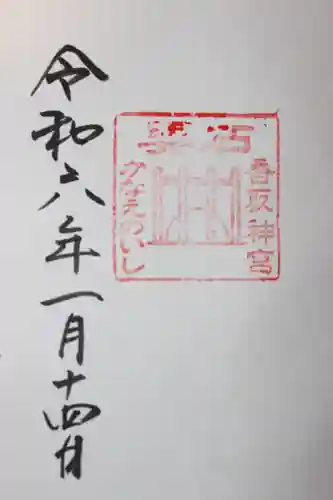 香取神宮
かなえのいし
令和六年一月十四日